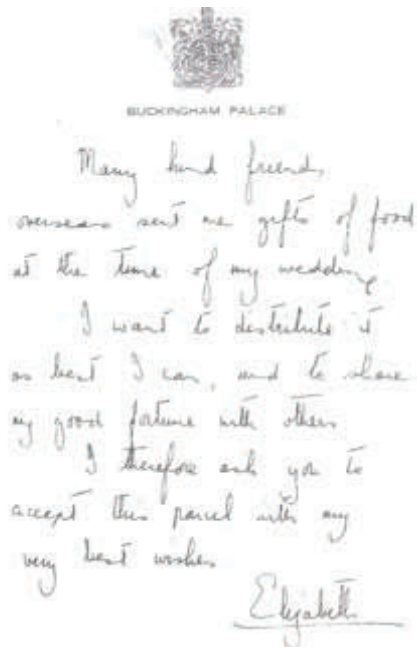 BUCKINGHAM PALACE
Many kind friends
overseas sent me gifts of food
at the time of my wedding
I want to distribute it
as best I can, and to share
my good fortune with others
I therefore ask you to
accept this parcel with my
very best wishes
Elizabeth